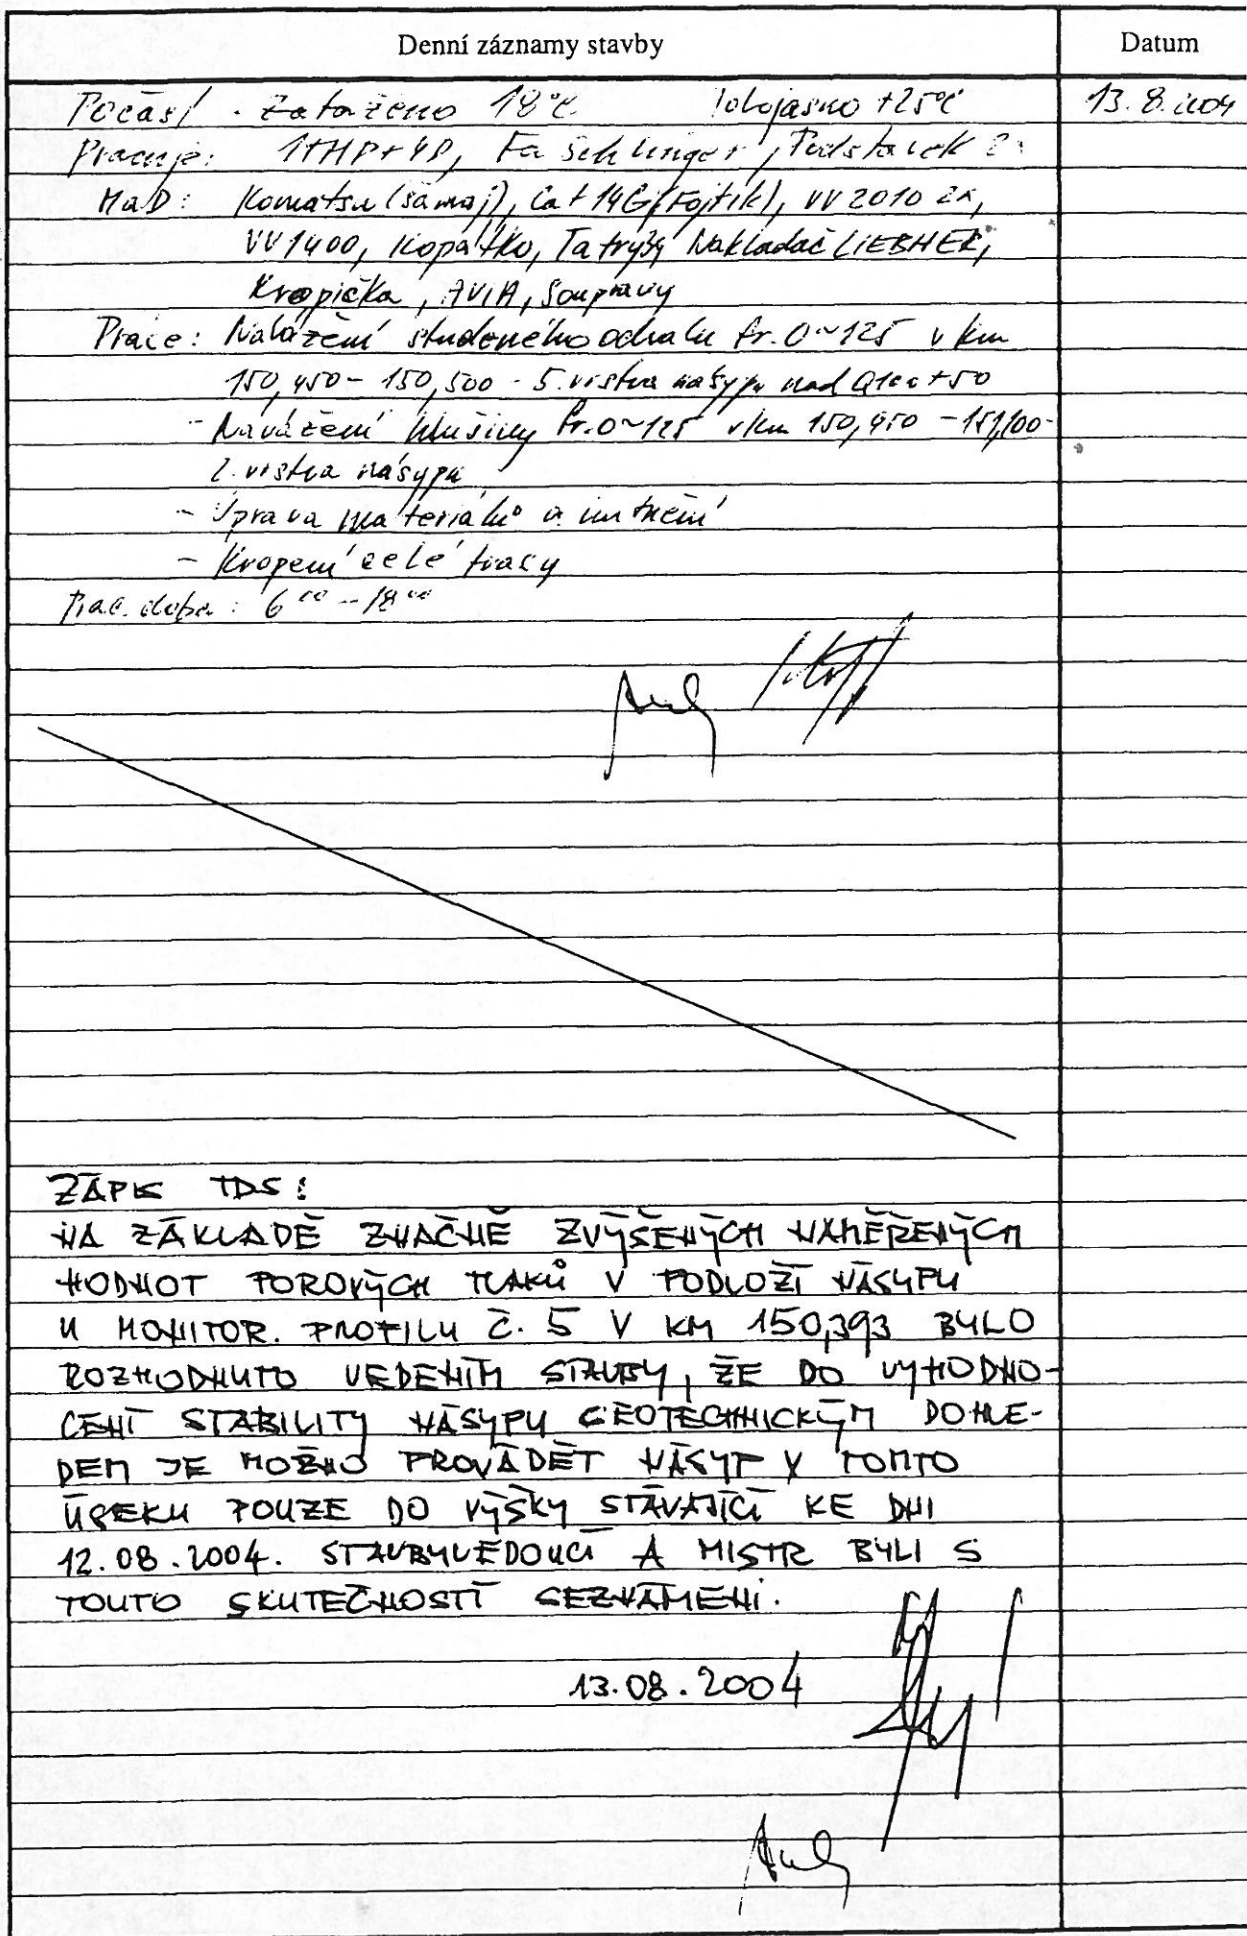 Denní záznamy stavby Datum
Počasí - Zataženo 18°C Polojasno +25°C 13.8.2004
Pracuje: 1THP+4D, Fa Schlinger, Podstavek 2x
MaD: Komatsu (šamaj), Cat 14G (Fojtík), VV 2010 2x,
VV1400, Kopátko, Tatry Nakladač LIEBHER,
Kropička, AVIA, Soupravy
Práce: Navážení studeného odvalu fr. 0~125 v km
150,450 - 150,500 - 5. vrstva násypu nad +50
- Navážení hlušiny fr. 0~125 v km 150,950 - 151,100 -
2. vrstva násypu
- Úprava materiálů a hutnění
- Kropení celé trasy
Prac. doba: 6 00 - 18 00
ZÁPIS TDS:
NA ZÁKLADĚ ZNAČNĚ ZVÝŠENÝCH NAMĚŘENÝCH
HODNOT POROVÝCH TLAKŮ V PODLOŽÍ NÁSYPU
U MONITOR. PROFILU Č. 5 V KM 150,393 BYLO
ROZHODNUTO VEDENÍM STAVBY, ŽE DO VYHODNO-
CENÍ STABILITY NÁSYPU GEOTECHNICKÝM DOHLE-
DEM JE MOŽNO PROVÁDĚT NÁSYP V TOMTO
ÚSEKU POUZE DO VÝŠKY STÁVAJÍCÍ KE DNI
12.08.2004. STAVBYVEDOUCÍ A MISTR BYLI S
TOUTO SKUTEČNOSTÍ SEZNÁMENI.
13.08.2004